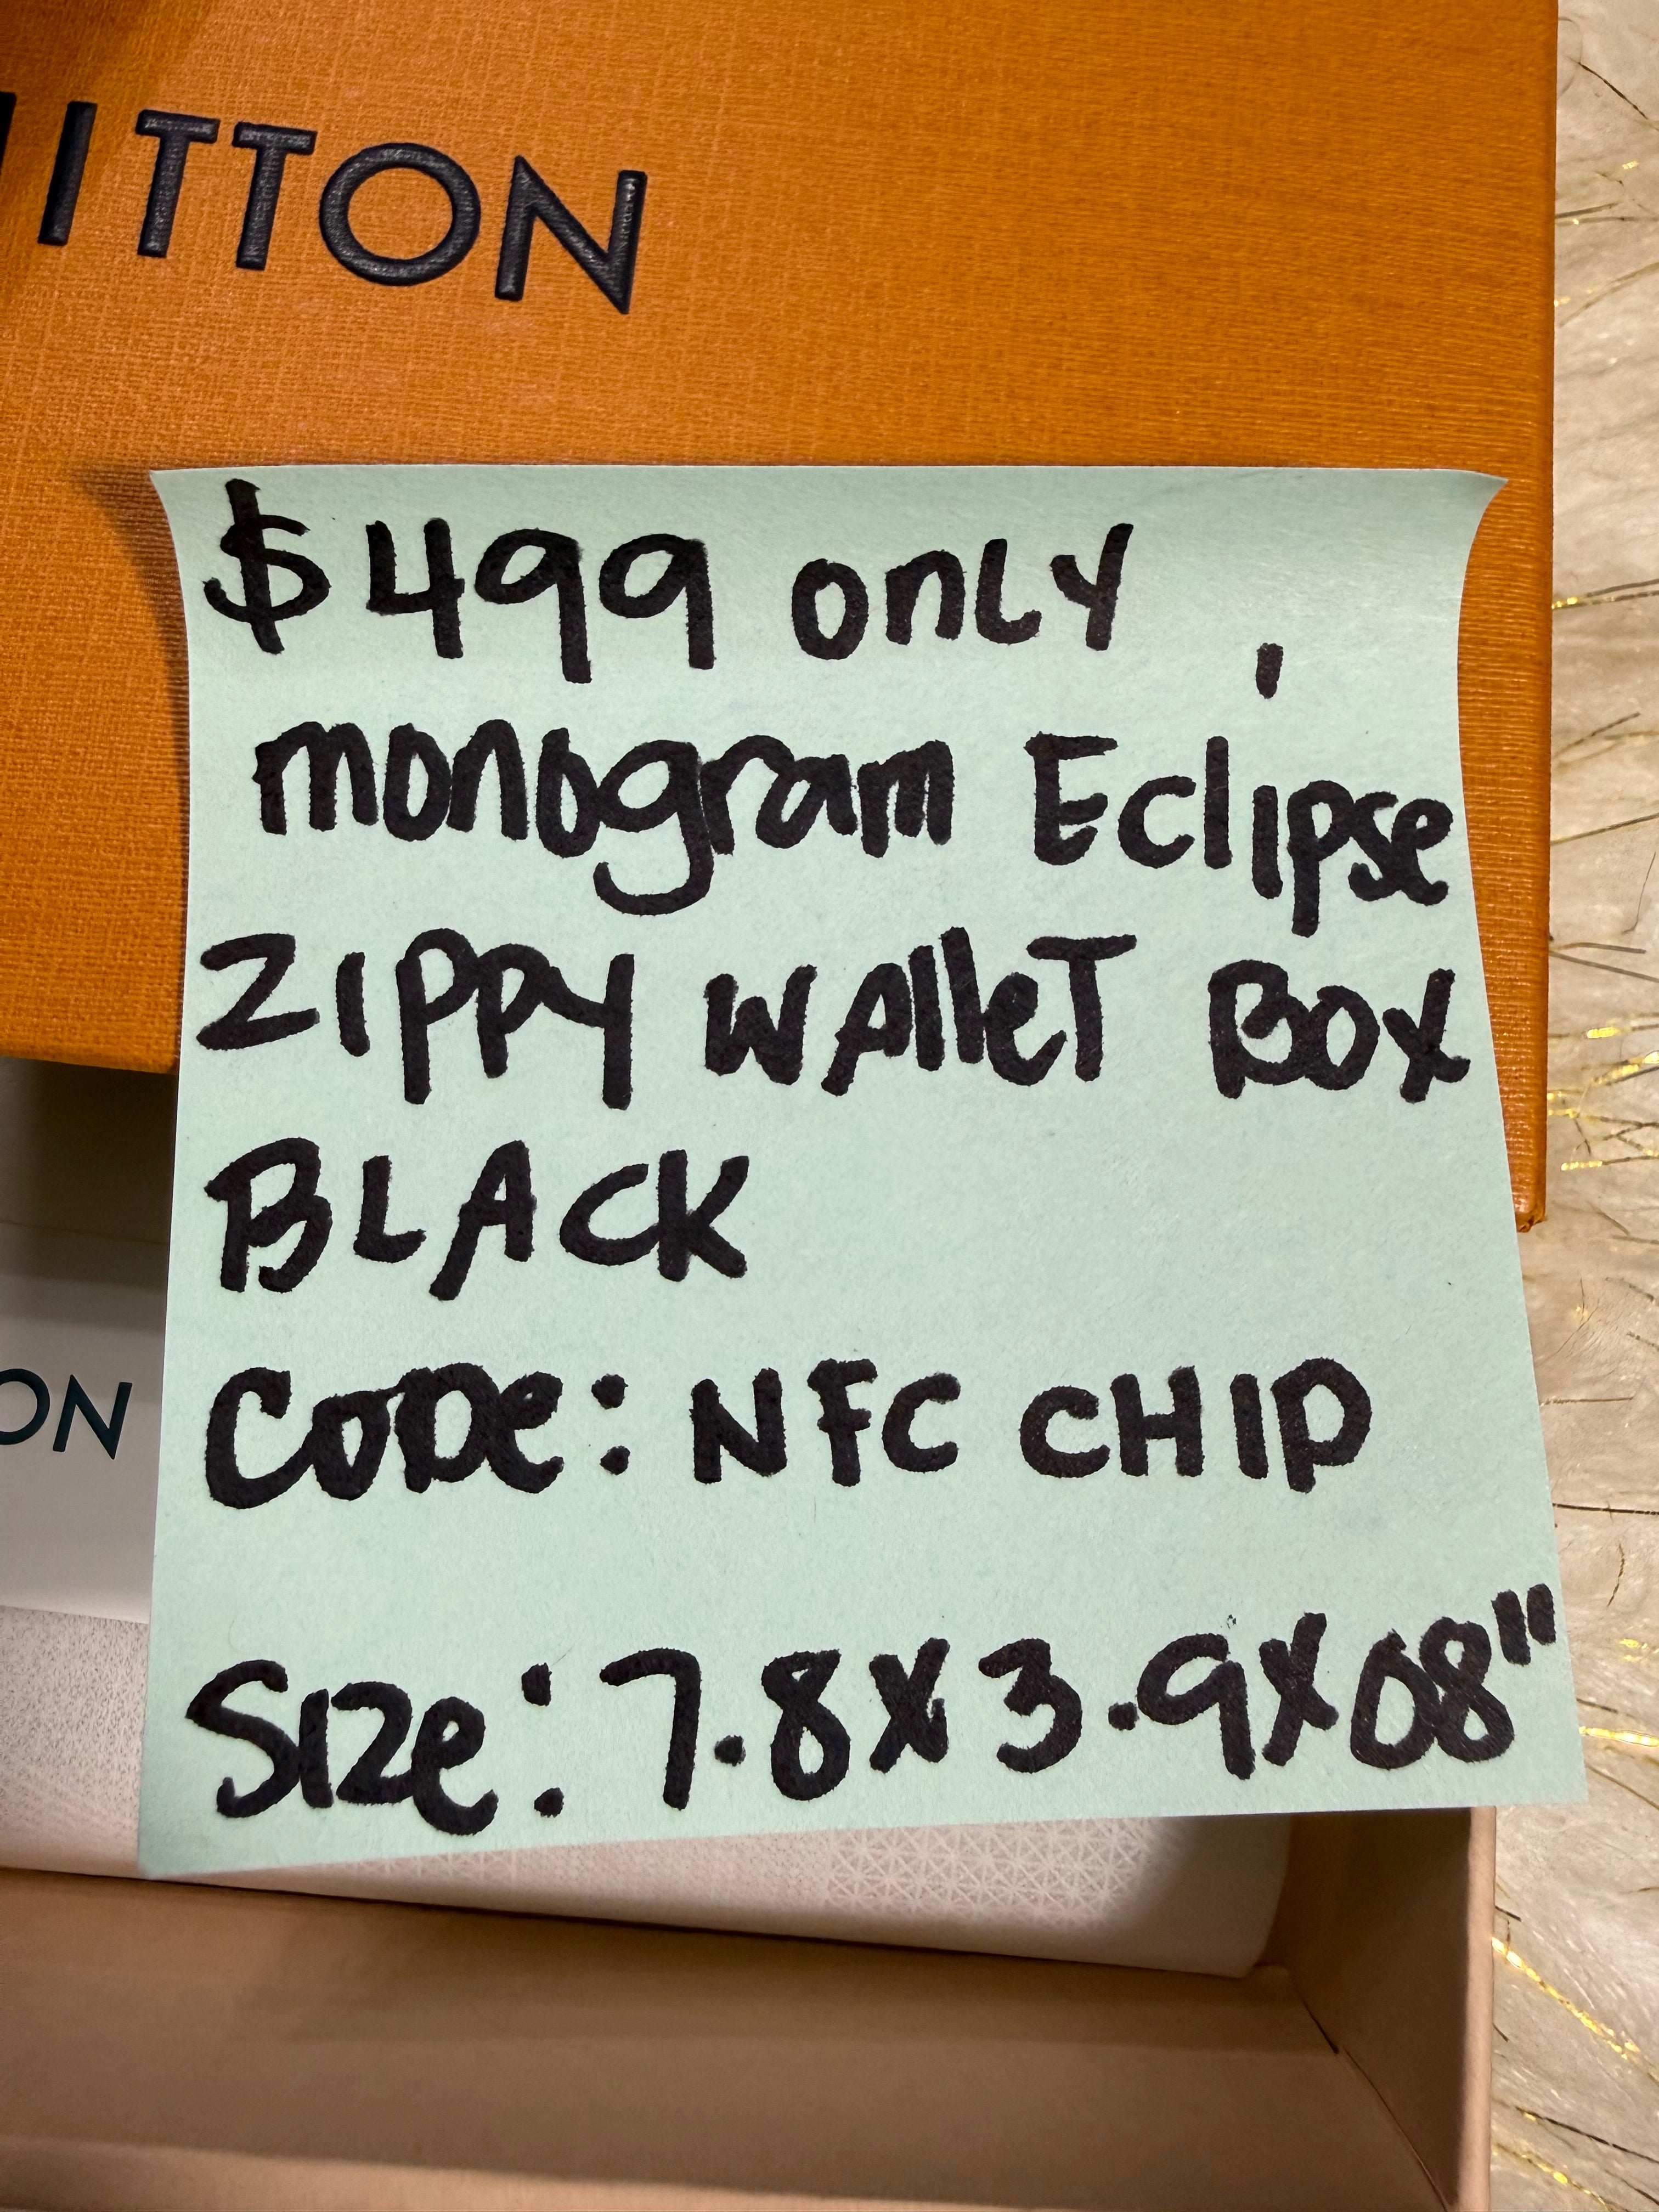 ITTON
$499 only
monogram Eclipse
Zippy WALLET BOX
BLACK
CODe: NFC CHIP
ON
Size: 7.8X3.9X08"